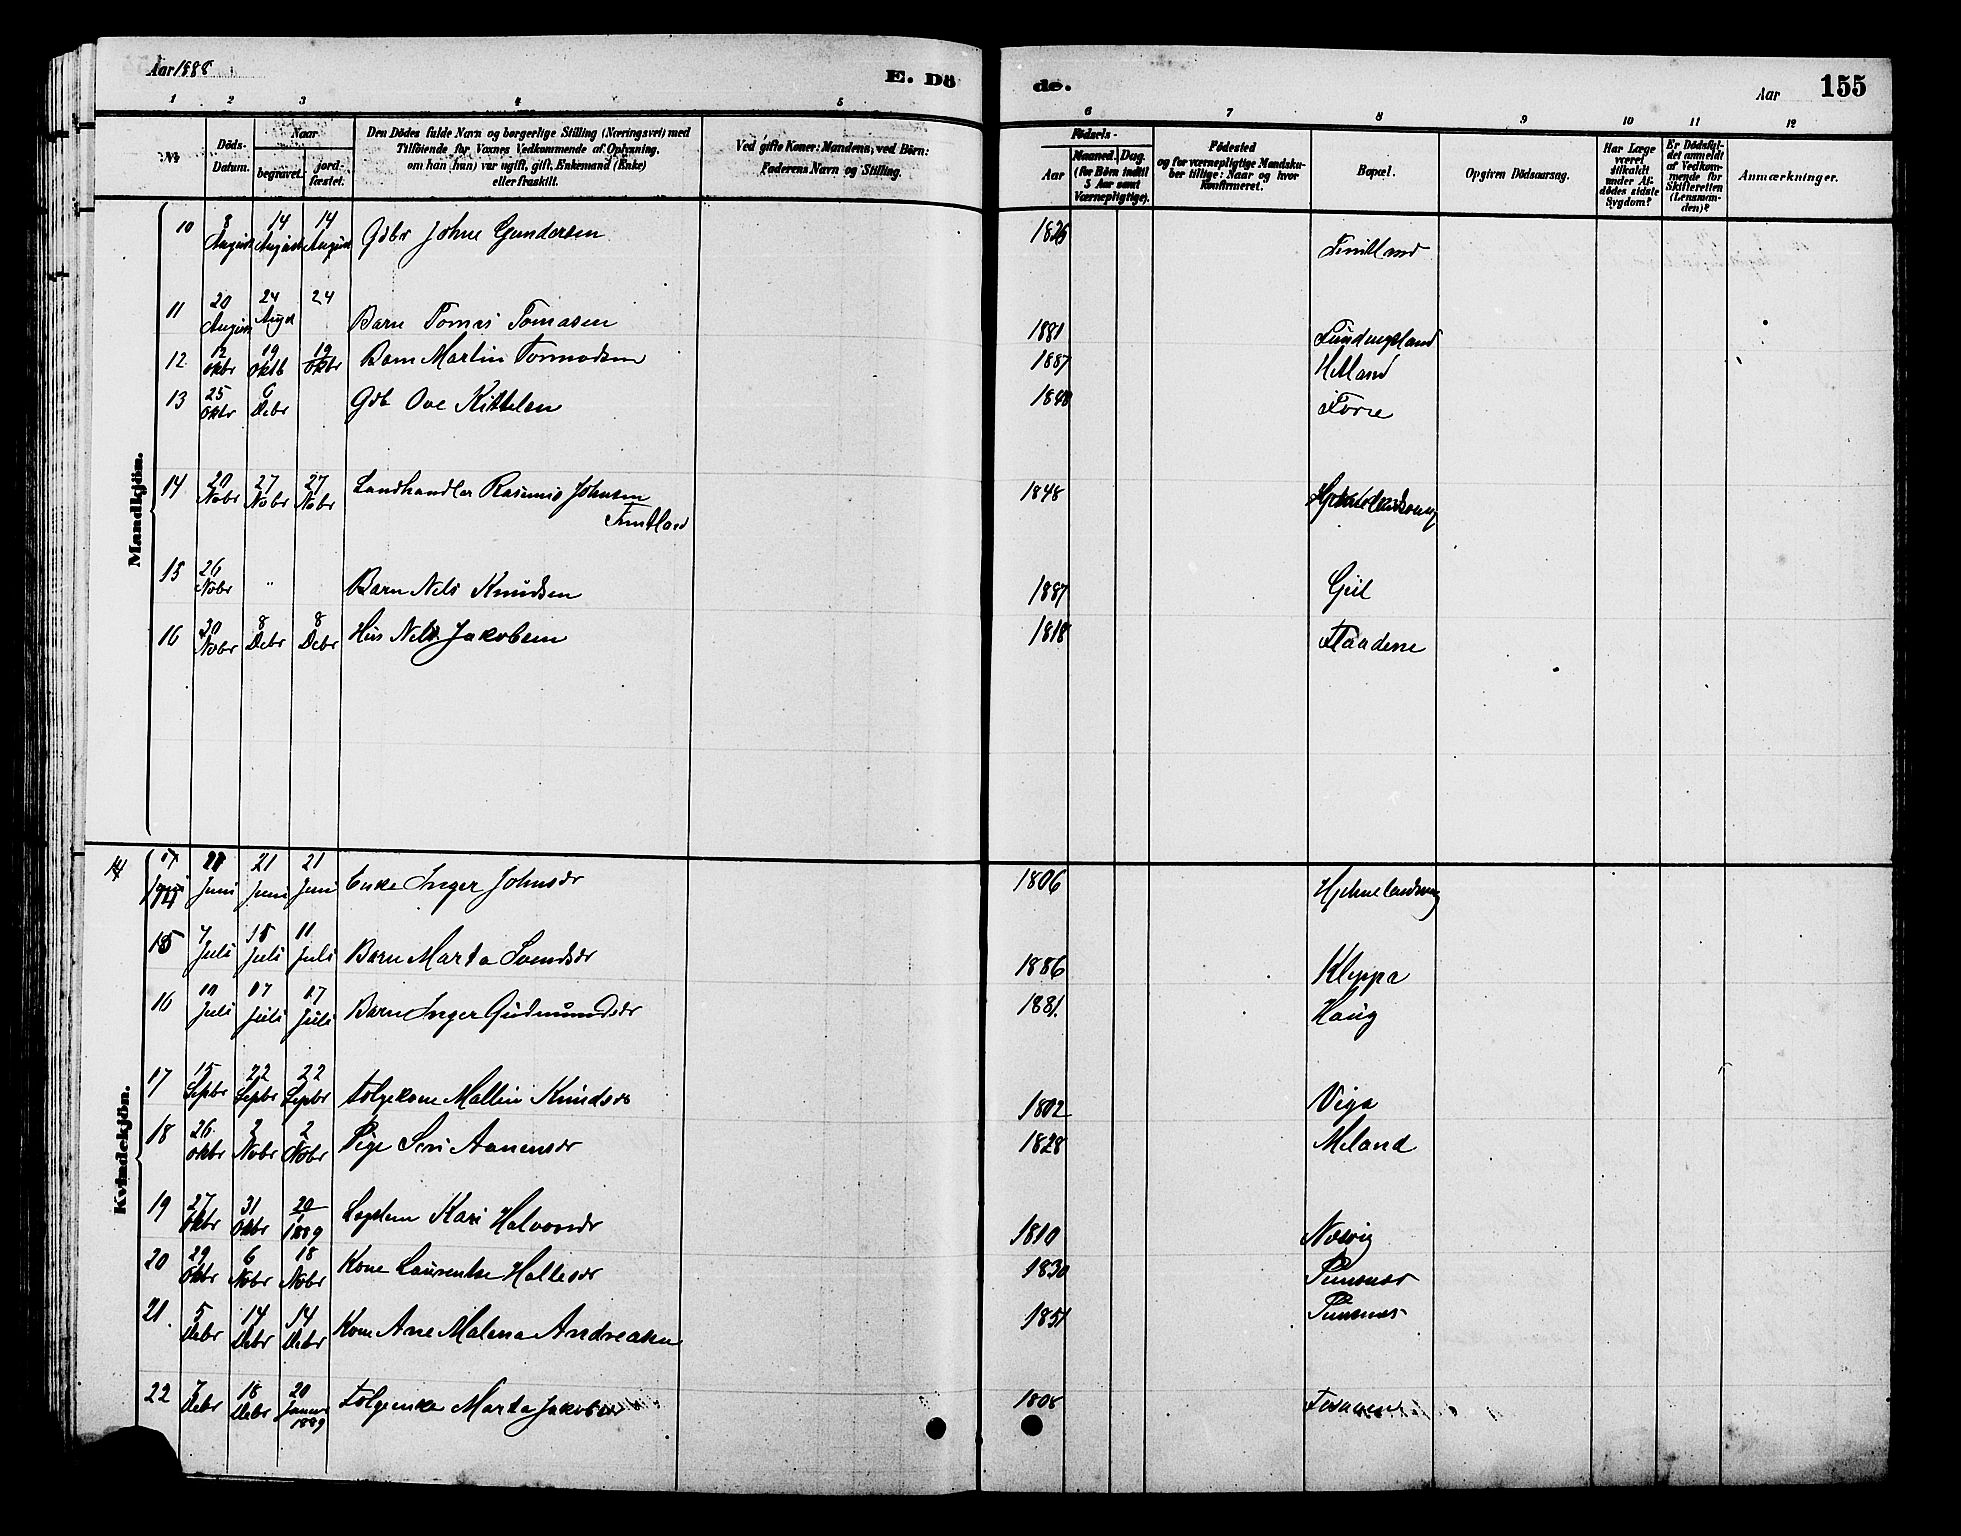 Aar 1888
E. Dö
de.
Aar
155
1 2 3 4 5 6 7 8 9 10 11 12
No
Döds-
Datum.
Naar
begravet.
jord-
fæstet.
Den Dödes fulde Navn og borgerlige Stilling (Næringsvei) med
Tilföiende for Voxnes Vedkommende af Oplysning,
om han (hun) var ugift, gift, Enkemand (Enke)
eller fraskilt.
Ved gifte Koner: Mandens; ved Börn:
Faderens Navn og Stilling.
Födsels-
Aar
Maaned. Dag.
(for Börn indtil
5 Aar samt
Værnepligtige).
Födested
og for værnepligtige Mandsku-
ber tillige: Naar og hvor
Konfirmeret.
Bopæl.
Opgiven Dödsaarsag.
Har Læge
været
tilkaldt
under Af-
dödes sidste
Sygdom?
Er Dödsfal-
det anmeldt
af Vedkom-
mende for
Skifteretten
(Lensman-
den)?
Anmærkninger.
Mandkjön.
10 8 August 14 August 14 August Gdbr Johne Gundersen 1826
11 20 August 24 Augst 24 Barn Tomas Tomasen 1881 Fundingsland
12 12 oktbr 19 oktb 19 oktbr Barn Martin Tormodsen 1887 Hetland
13 25 oktbr 6 Debr Gdb Ove Kittelsen Forre
14 20 Nobr 27 Nobr 27 Nobr Landhandler Rasmus Johnsen 1848 Hjelmelandsvaag
15 26 Nobr " Barn Nels Knudsen 1887 Geil
16 30 Nobr 8 Debr 8 Debr Hus Nels Jakobsen 1818
Kvindekjön.
14 Juni 21 Juni 21 Juni Enke Inger Johnsdr 1806 Hjelmelandsvaag
15 7 Juli 15 Juli 11 Juli Barn Marta Svendsdr 1886 Kleppa
16 10 Juli 17 Juli 17 Juli Barn Inger Gudmundsdr 1881. Haug
17 15 Sepbr 22 Sepbr 22 Sepbr Folgekone Mallin Knudsdr 1802 Viga
18 26 oktbr 2 Nobr 2 Nobr Pige Seri Aanensdr 1828 Meland
19 27 oktbr 31 oktbr 20/1 1889 Legdlem Kari Halvorsdr 1810 Nesvig
20 29 oktbr 6 Nobr 18 Nobr Kone Laurentse Hallesdr 1830 Pundsnes
21. 5 Debr 14 Debr 14 Debr Kone Ane Malena Andreasen 1851 Pundsnes
22 7 Debr 18 Debr 20 Januar 1889 Folgeenke Marta Jakobsdr 1808